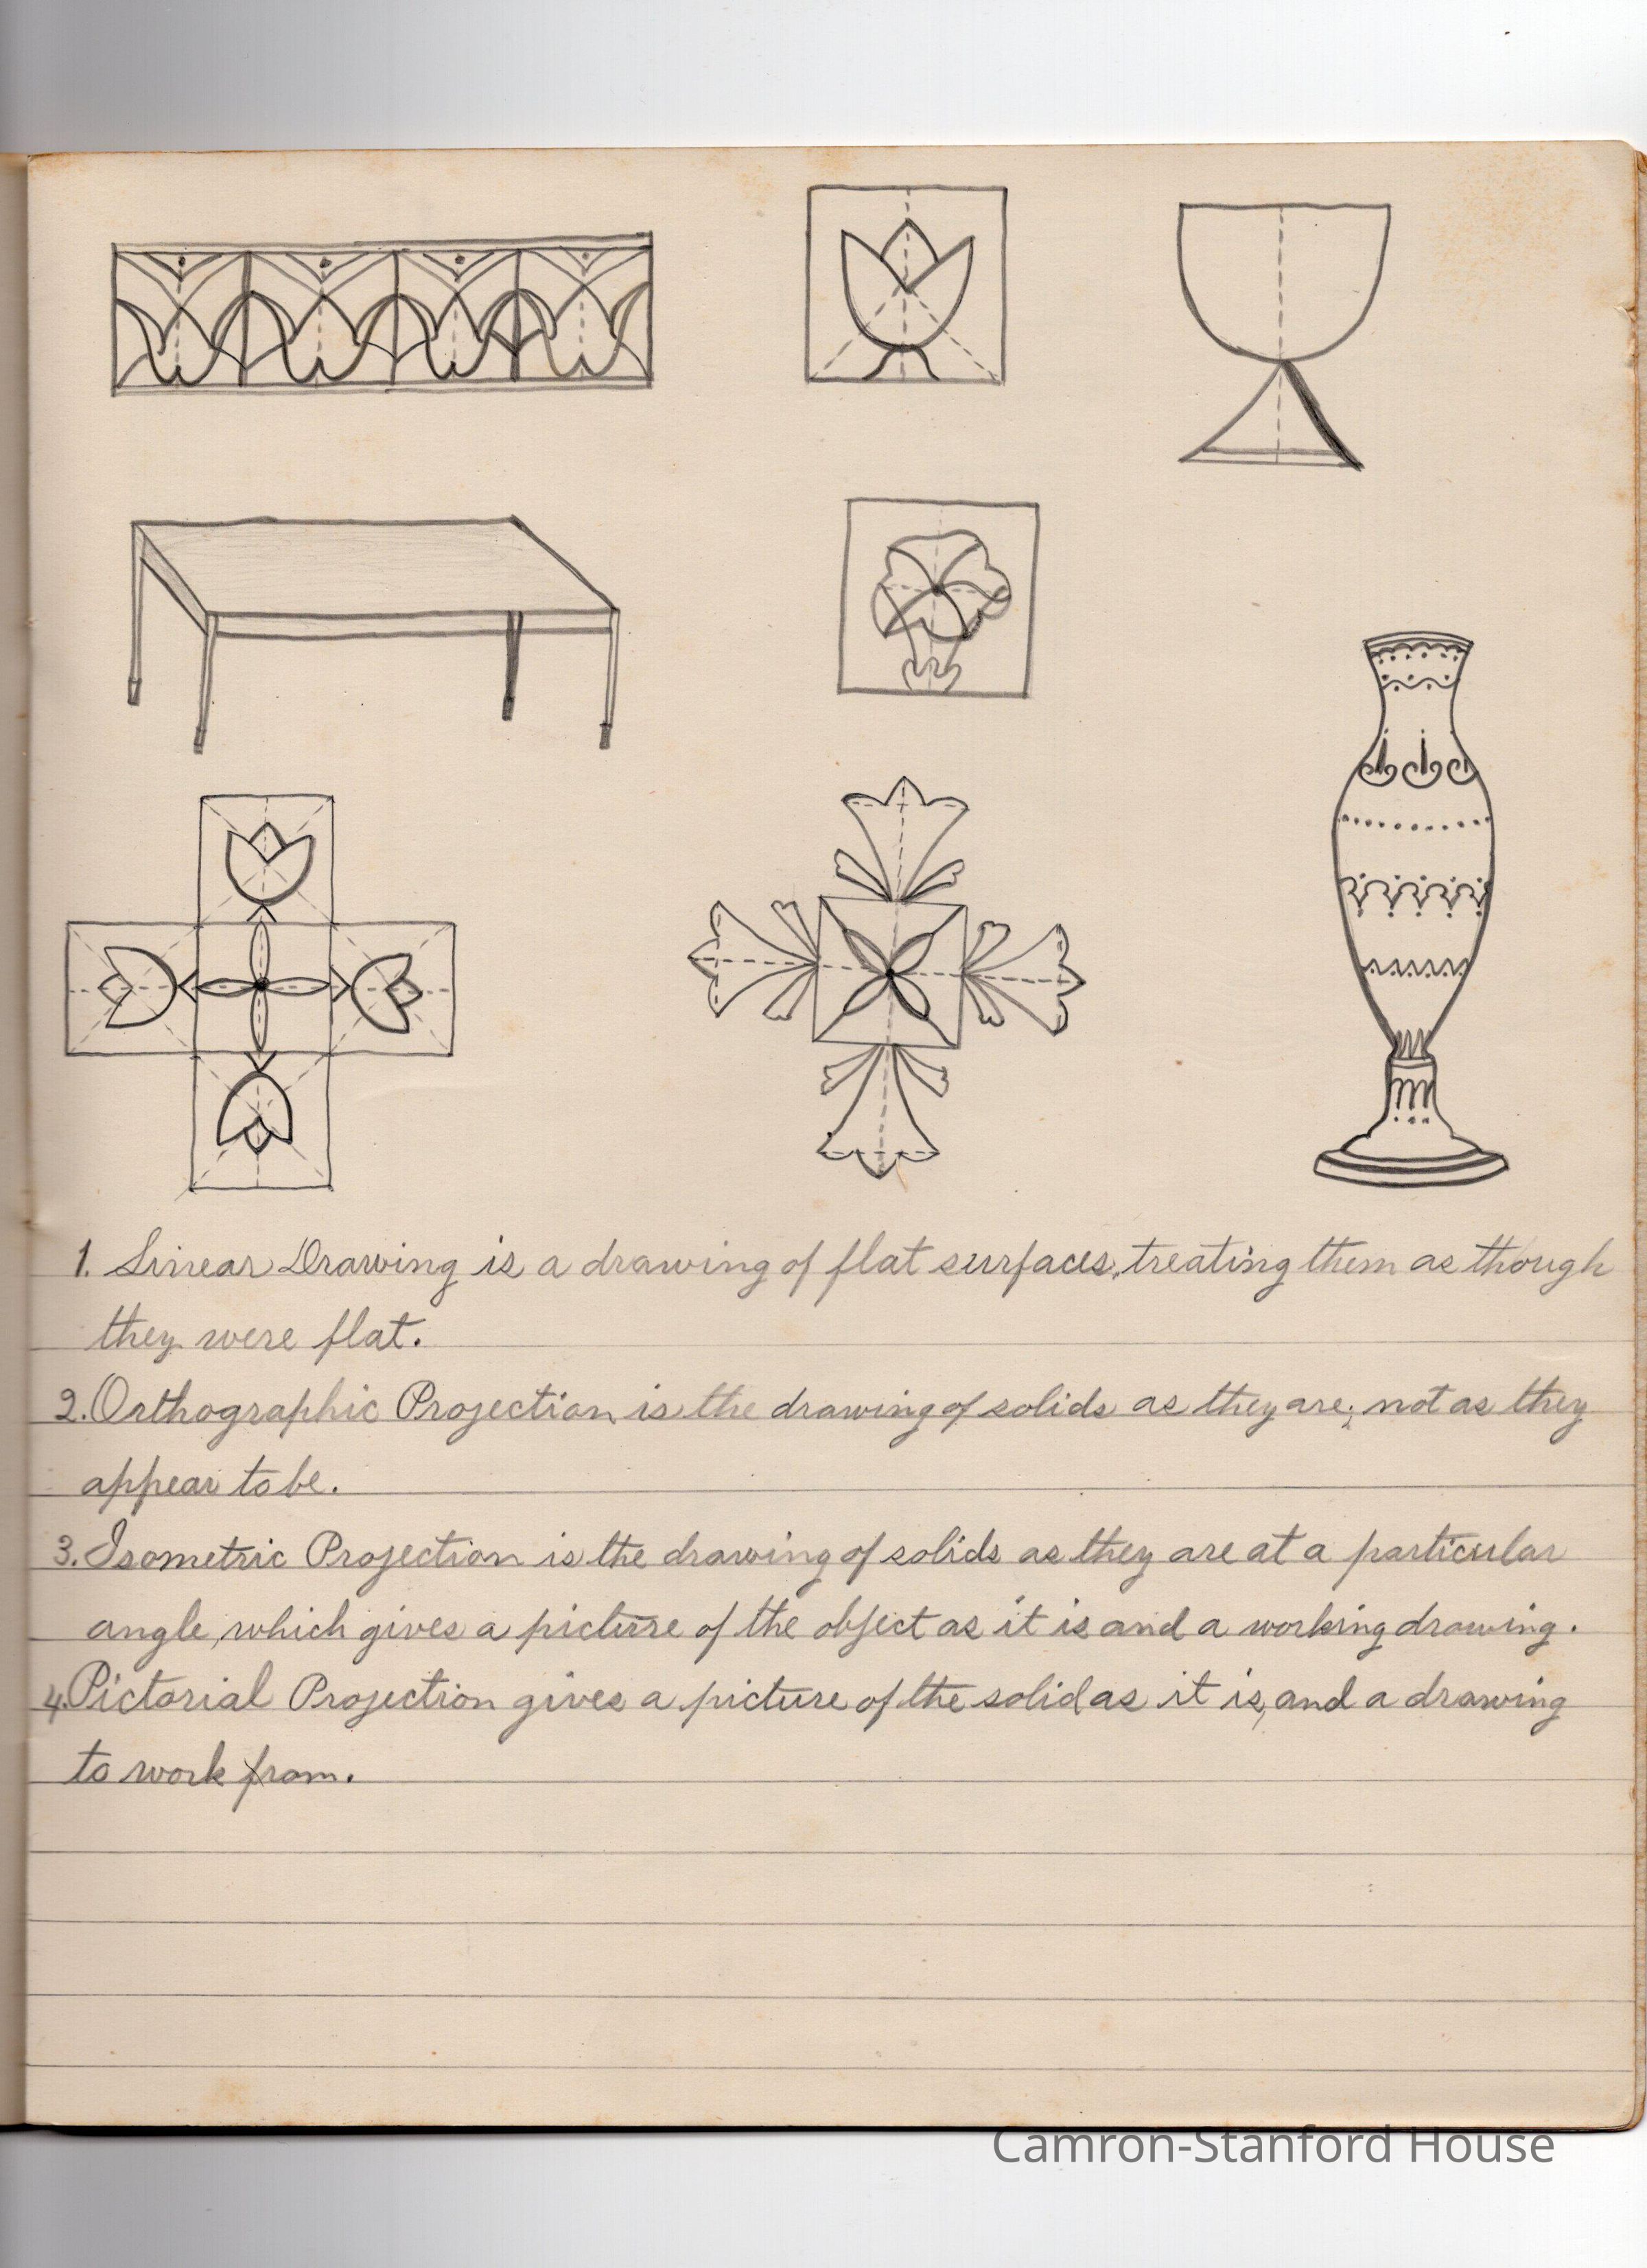 1. Linear Drawing is a drawing of flat surfaces, treating them as though
they were flat.
2. Orthographic Projection is the drawing of solids as they are; not as they
appear to be.
3. Isometric Projection is the drawing of solids as they are at a particular
angle, which gives a picture of the object as it is and a working drawing.
4. Pictorial Projection gives a picture of the solid as it is, and a drawing
to work from.
Camron-Stanford House